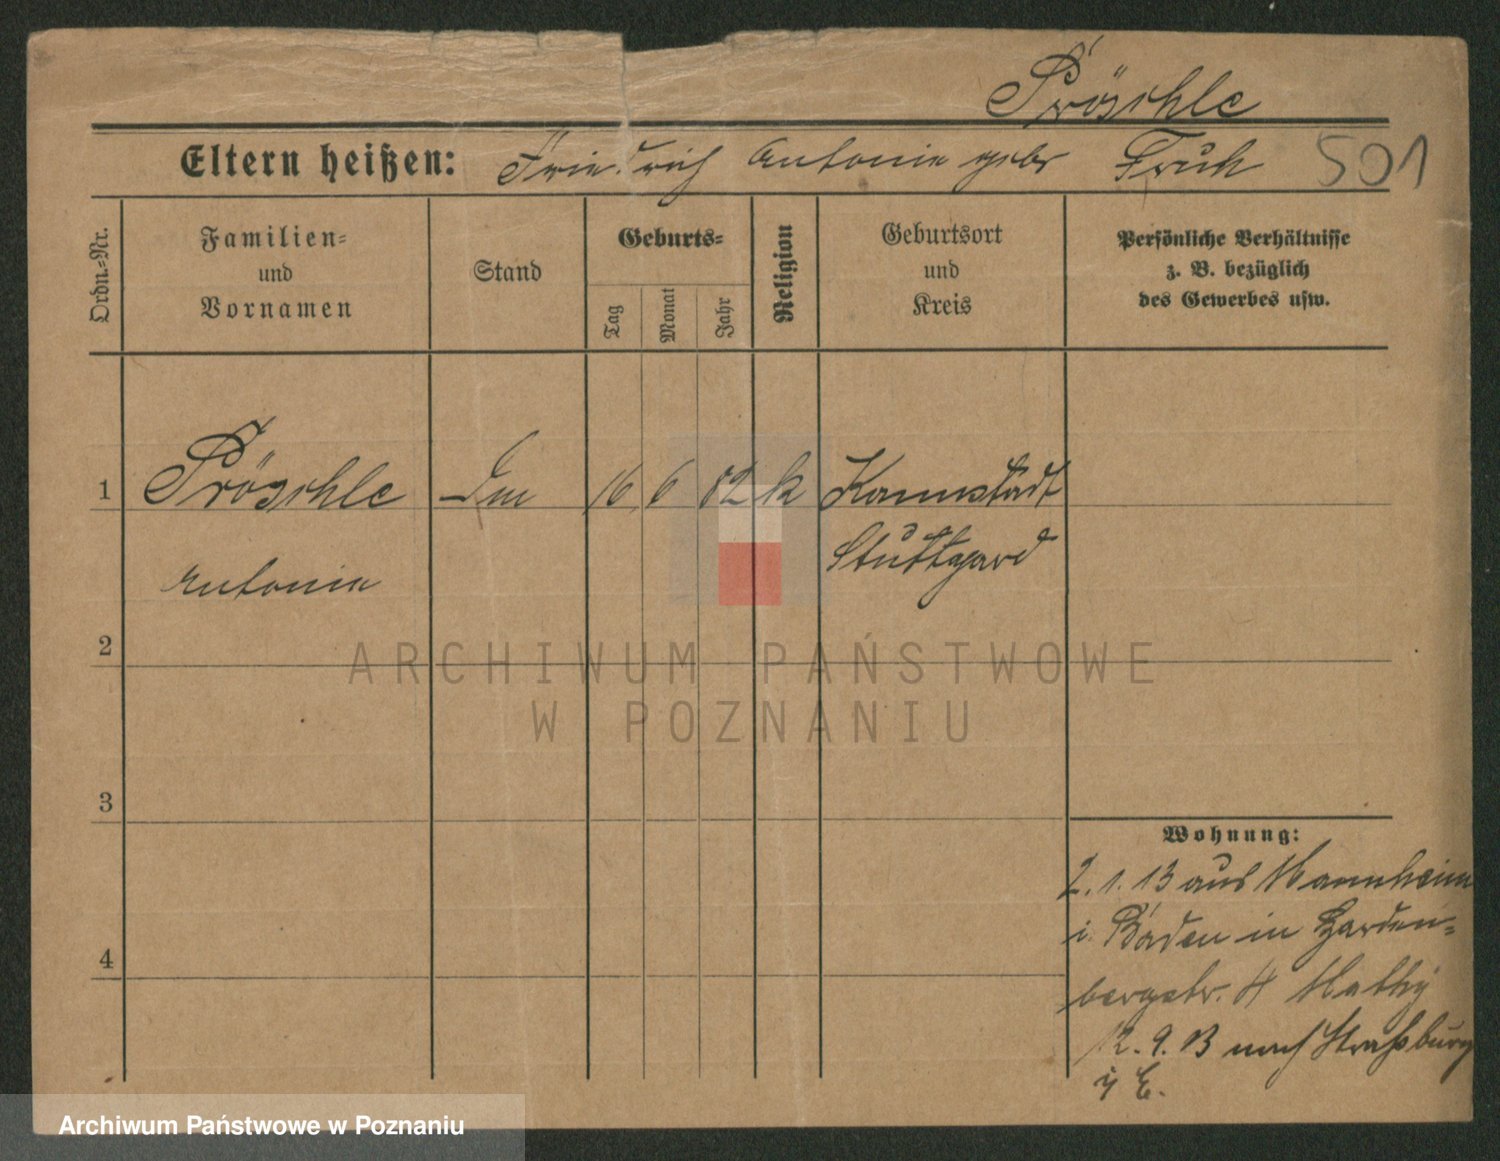 Pröschle
Eltern heißen: Friedrich Antonie gebr Fruh 501
Ordn.-Nr.
Familien-
und
Vornamen
Stand
Geburts-
Tag
Monat
Jahr
Religion
Geburtsort
und
Kreis
Persönliche Verhältnisse
z. B. bezüglich
des Gewerbes usw.
1 Pröschle 16 6 82 k Kannstadt
Stuttgard
Antonie
2
ARCHIWUM PAŃSTWOWE
W POZNANIU
3
Wohnung:
2. 1. 13 aus Mannheim
i. Baden in Harden-
4
bergstr. 4 Mathy
12. 9. 13 nach Straßburg
i/ E.
Archiwum Państwowe w Poznaniu